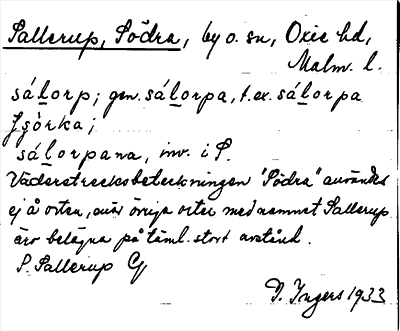 Sallerup, Södra, by o. sn, Oxie hd,
Malm. l.
sálorp; gen. sálorpa, t.ex. sálorpa
tjörka;
sálorpana, inv. i S.
Väderstrecksbeteckningen "Södra" användes
ej å orten, enär övriga orter med namnet Sallerup
äro belägna på täml. stort avstånd.
S. Sallerup
D. Ingers 1933